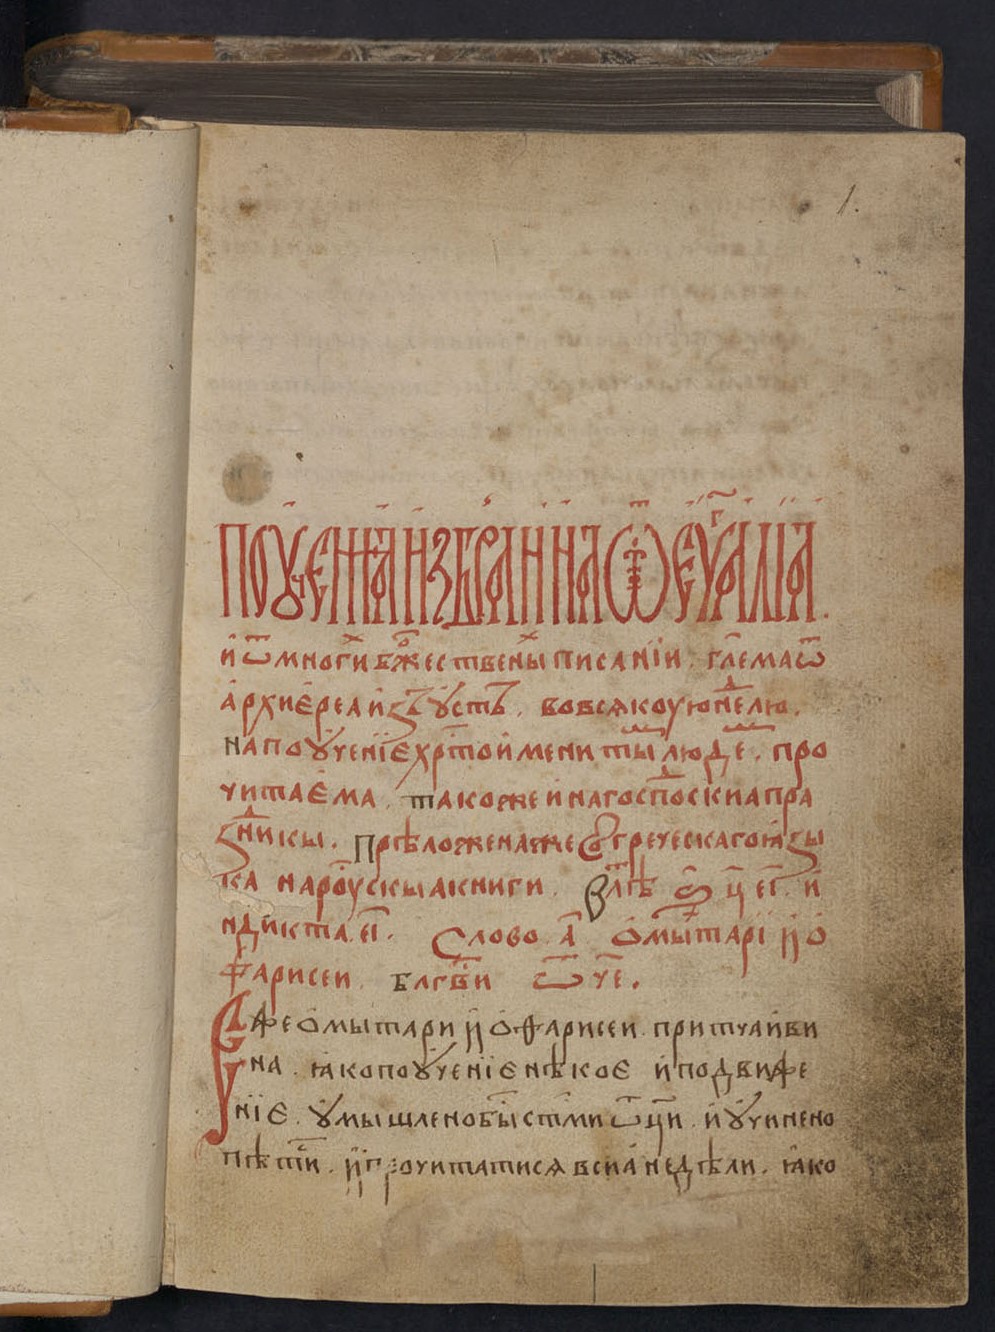 1.
ПОУ҆ЧЕНЇѦ И҆ЗБРАННАѦ Ѿ ЕУ҆ГАЛІѦ.
и҆ ѿ многи х бж҃ественых писанїи. гл҃ема ѿ
а҆рхие҆рєа и҆зъ у҆стъ. во всякоую нед҃лю.
на поу҆ченїе хр҃тои҆мениты людє. про
читае҆ма. такожє и на госпо҃скиа пра
зники. прѣложена же ѿ гречєскаго ꙗ҆зы
ка на роу҆скыа книги. в лѣ҃ ц҃ еі҃. и
ндикта. еі҃. Слово. а҃ ѻ҆ мытари и҆ ѻ҆
фарисеи. бл҃гви ѿч҃е.
Ꙗже ѻ҆ мытари и҆ ѻ҆ фарисеи. притча и҆ ви
на. ꙗ҆ко поу҆ченїе нѣкоє и҆ подвиже
нїє. у҆мышлено бы҃ ст҃ми ѿц҃и. и҆ у҆чинено
пѣти. и҆ прочитатися в сиа недѣли. ꙗ҆ко